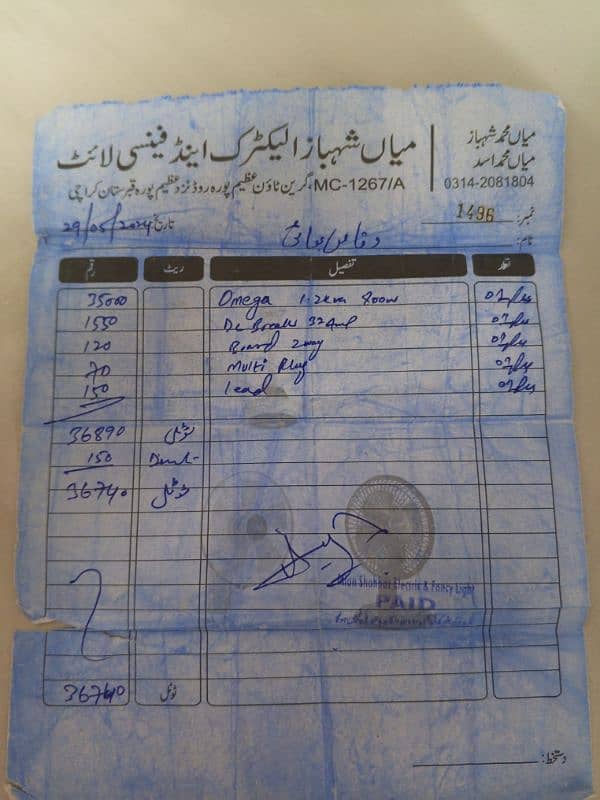 میاں شہباز الیکٹرک اینڈ فینسی لائٹ
میاں محمد شہباز
میاں محمد اسد
0314-2081804
MC-1267/A گرین ٹاؤن عظیم پورہ روڈ نزد عظیم پورہ قبرستان کراچی
نمبر: 1496
تاریخ 29/05/2024
نام: وقاص بھائی
تعداد تفصیل ریٹ رقم
01/Ps Omega 1.2kva 800w 35000
01/Ps Dc Break 32 Amp 1550
01/Ps Board 2way 120
01/Ps Multi Plug 70
01/Ps Lead 150
ٹوٹل 36890
150
ٹوٹل 36740
Mian Shahbaz Electric & Fancy Light
PAID
ٹوٹل 36740
دستخط: